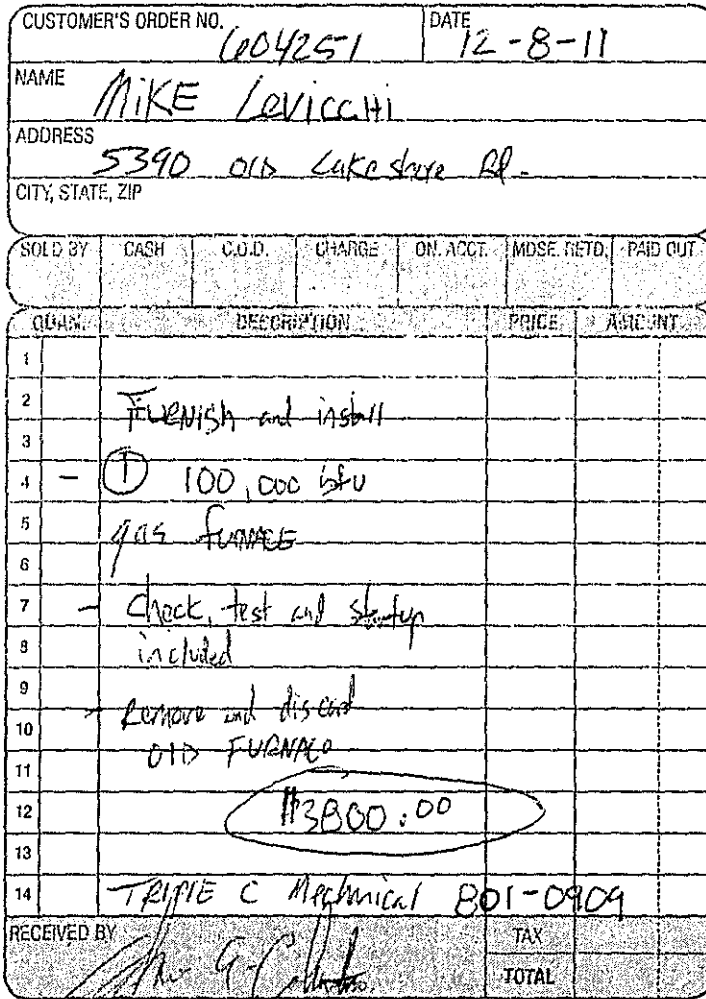 CUSTOMER'S ORDER NO. 604251 DATE 12-8-11
NAME MIKE Levicchi
ADDRESS 5390 OLD Lakeshore Rd.
CITY, STATE, ZIP
SOLD BY CASH C.O.D. CHARGE ON. ACCT. MDSE. RETD. PAID OUT
QUAN. DESCRIPTION PRICE AMOUNT
1
2 FURNISH and install
3
4 - 1 100,000 btu
5 gas FURNACE
6
7 - Check, test and startup
8 included
9 - Remove and discard
10 OLD FURNACe
11
12 $3800.00
13
14 TRIPlE C Mechanical 801-0909
RECEIVED BY TAX
TOTAL